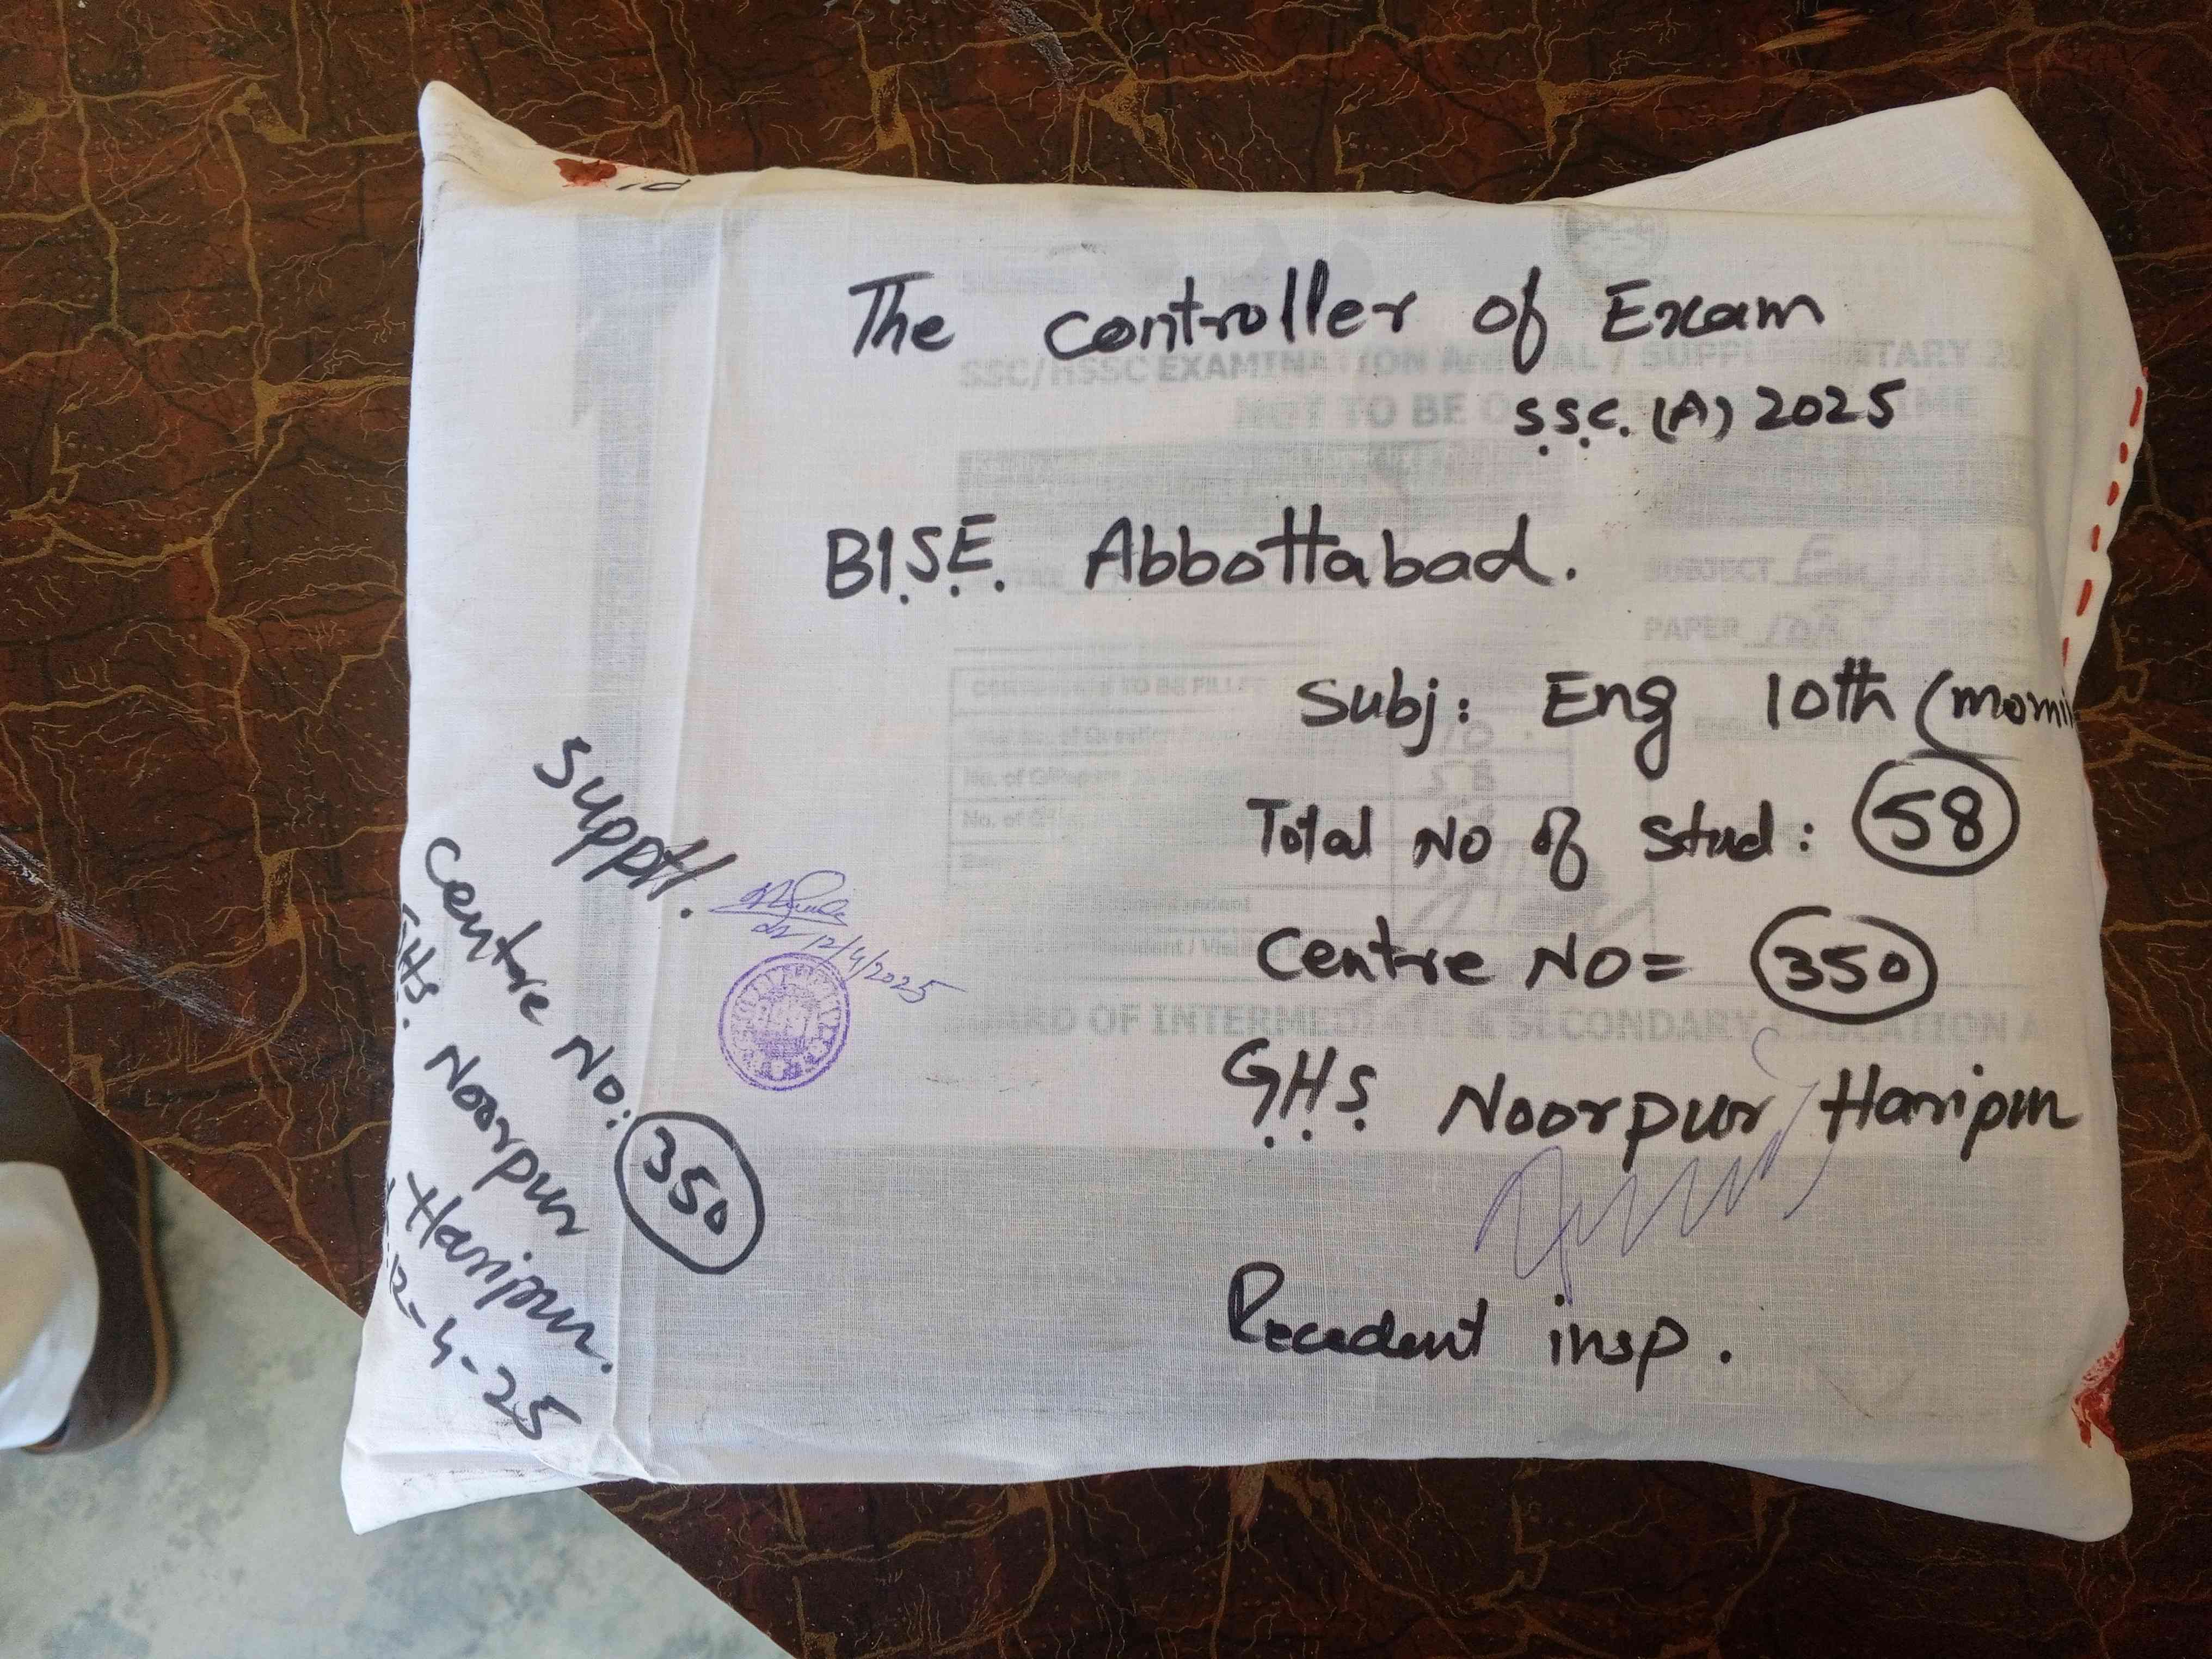 The Controller of Exam
S.S.C. (A) 2025
B.I.S.E. Abbottabad.
Subj: Eng 10th (morni
Total No of Stud: 58
Centre No= 350
G.H.S. Noorpur Haripur
Recedent insp.
Supptt.
12/4/2025
Centre No: 350
GHS. Noorpur
Haripur.
12-4-25
SSC/HSSC EXAMINATION ANNUAL / SUPPLEMENTARY
NOT TO BE
SUBJECT Eng
PAPER 10th
BOARD OF INTERMEDIATE & SECONDARY EDUCATION A